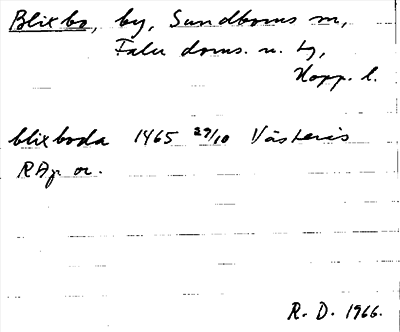 Blixbo, by, Sundborns sn,
Falu doms. n. tg,
Kopp. l.
blixboda 1465 29/10 Västerås
RAp or.
R. D. 1966.